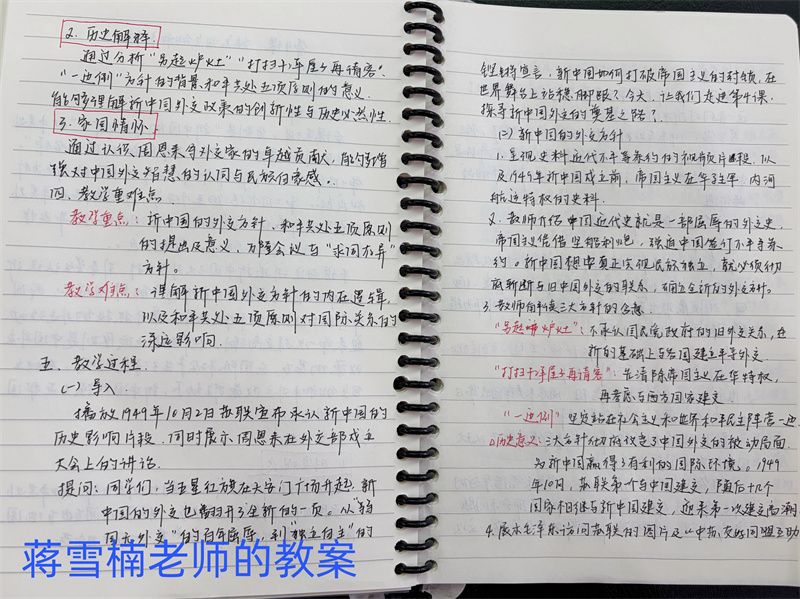 2. 历史解释
通过分析“另起炉灶”“打扫干净屋子再请客”
“一边倒”方针的背景和和平共处五项原则的意义,
能够理解新中国外交政策的创新性与历史必然性.
3. 家国情怀.
通过认识周恩来等外交家的卓越贡献, 能够增
强对中国外交智慧的认同与民族自豪感..
四、教学重难点
教学重点: 新中国的外交方针、和平共处五项原则
的提出及意义, 万隆会议与“求同存异”
方针。
教学难点: 理解新中国外交方针的内在逻辑,
以及和平共处五项原则对国际关系的
深远影响.
五. 教学过程.
(一) 导入
播放1949年10月2日苏联宣布承认新中国的
历史影响片段. 同时展示周恩来在外交部成立
大会上的讲话.
提问: 同学们, 当五星红旗在天安门广场升起, 新
中国的外交也翻开了全新的一页。从“弱
国无外交”的百年屈辱, 到“独立自主”的
铿锵宣言, 新中国如何打破帝国主义的封锁, 在
世界舞台上站稳脚跟? 今天, 让我们走进第4课,
探寻新中国外交的奠基之路?
(二) 新中国的外交方针
1. 呈现史料近代不平等条约的视频片段, 以
及1949年新中国成立前, 帝国主义在华驻军、内河
航运特权的史料.
2. 教师介绍中国近代史就是一部屈辱的外交史,
帝国主义凭借坚船利炮, 强迫中国签订不平等条
约。新中国想要真正实现民族独立, 就必须彻
底斩断与旧中国外交的联系, 确立全新的外交方针。
3. 教师解读三大方针的含意.
“另起炉灶”: 不承认国民党政府的旧外交关系, 在
新的基础上与各国建立平等外交
“打扫干净屋子再请客”: 先清除帝国主义在华特权,
再考虑与西方国家建交
“一边倒” 坚定站在社会主义和世界和平民主阵营一边
历史意义: 三大方针彻底改变了中国外交的被动局面
为新中国赢得了有利的国际环境。1949
年10月, 苏联第一个与中国建交, 随后十几个
国家相继与新中国建交, 迎来第一次建交高潮
4. 展示毛泽东访问苏联的图片及《中苏友好同盟互助
蒋雪楠老师的教案